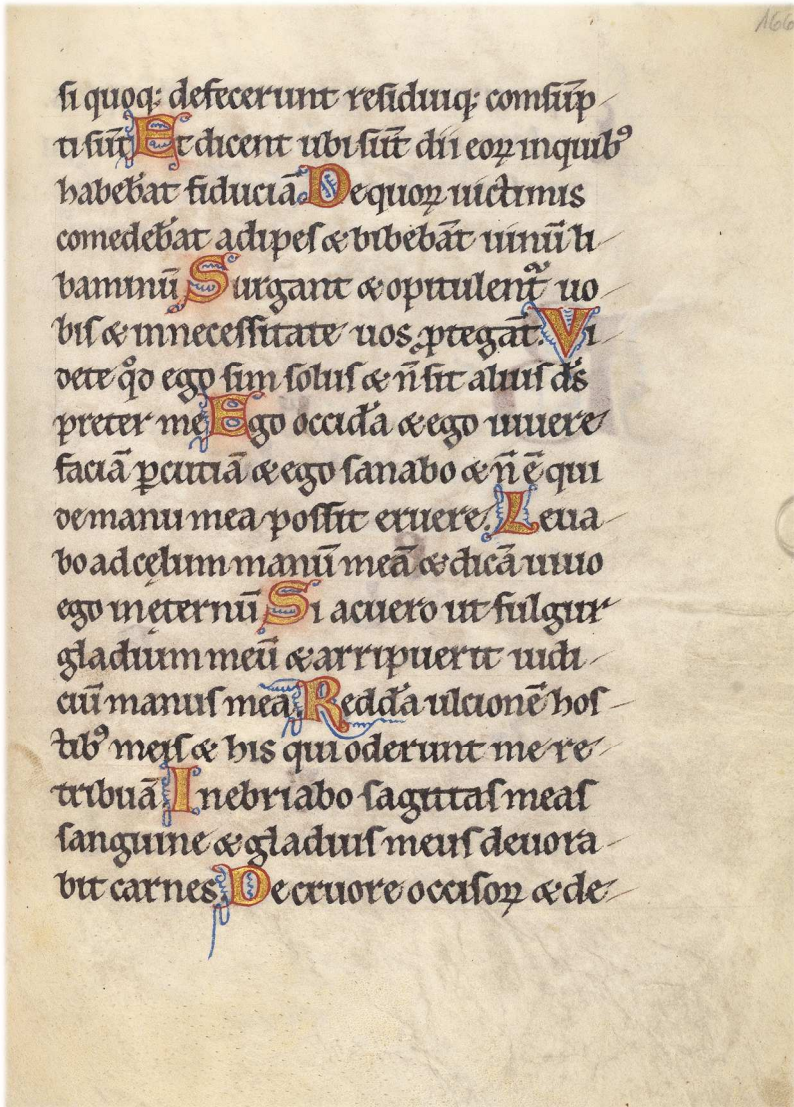 166
si quoq; defecerunt residuiq; comsūp
ti sūt Et dicent ubi sūt dii eoꝝ in quibꝰ
habebāt fiduciā De quoꝝ uictimis
comedebāt adipes & bibebāt uinū li
baminū Surgant & opitulent᷑ uo
bis & in necessitate uos ꝓtegāt. Vi
dete qd̓ ego sim solus & n̄ sit alius d̄s
preter me Ego occidā & ego uiuere
faciā ꝑcutiā & ego sanabo & n̄ ē qui
de manu mea possit eruere. Leua
bo ad cęlum manū meā & dicā uiuo
ego in ęternū Si acuero ut fulgur
gladium meū & arripuerit iudi
ciū manus mea. Reddā ulcionē hos
tibꝰ meis & his qui oderunt me re
tribuā Inebriabo sagittas meas
sanguine & gladius meus deuora
bit carnes. De cruore occisoꝝ & de